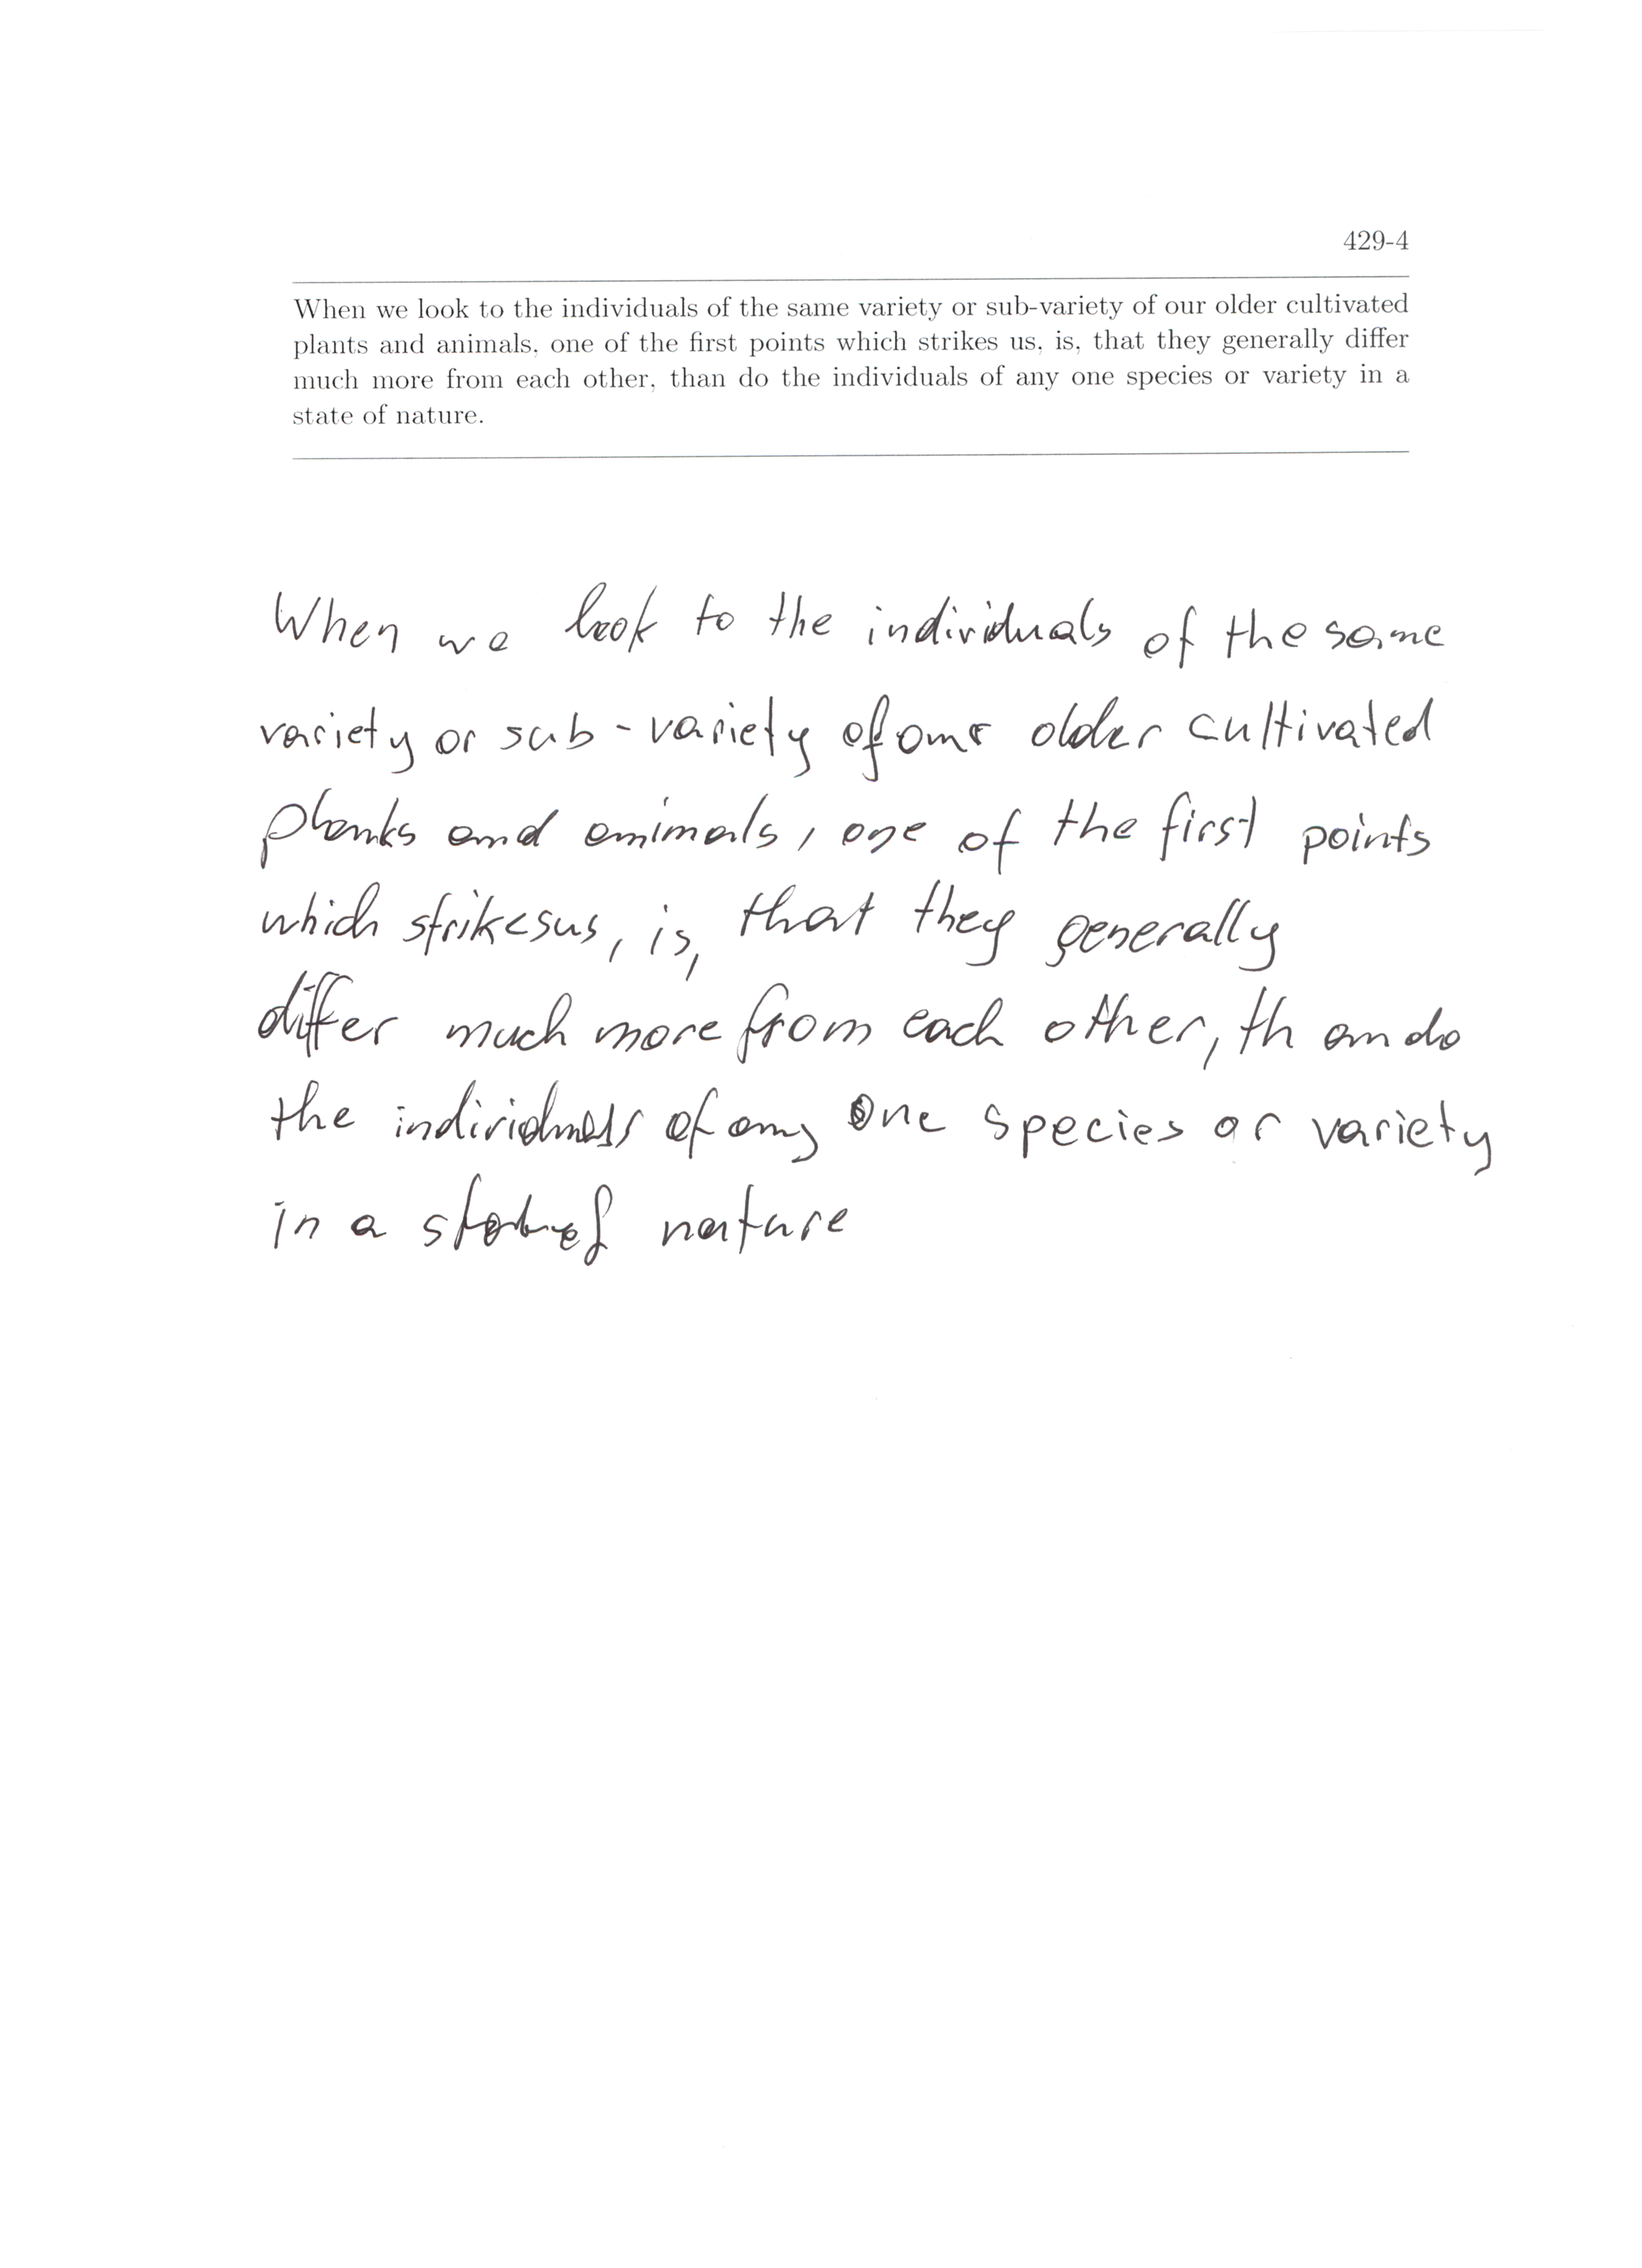 429-4
When we look to the individuals of the same variety or sub-variety of our older cultivated
plants and animals, one of the first points which strikes us, is, that they generally differ
much more from each other, than do the individuals of any one species or variety in a
state of nature.
When we look to the individuals of the same
variety or sub-variety of our older cultivated
plants and animals, one of the first points
which strikes us, is, that they generally
differ much more from each other, than do
the individuals of any one species or variety
in a state of nature